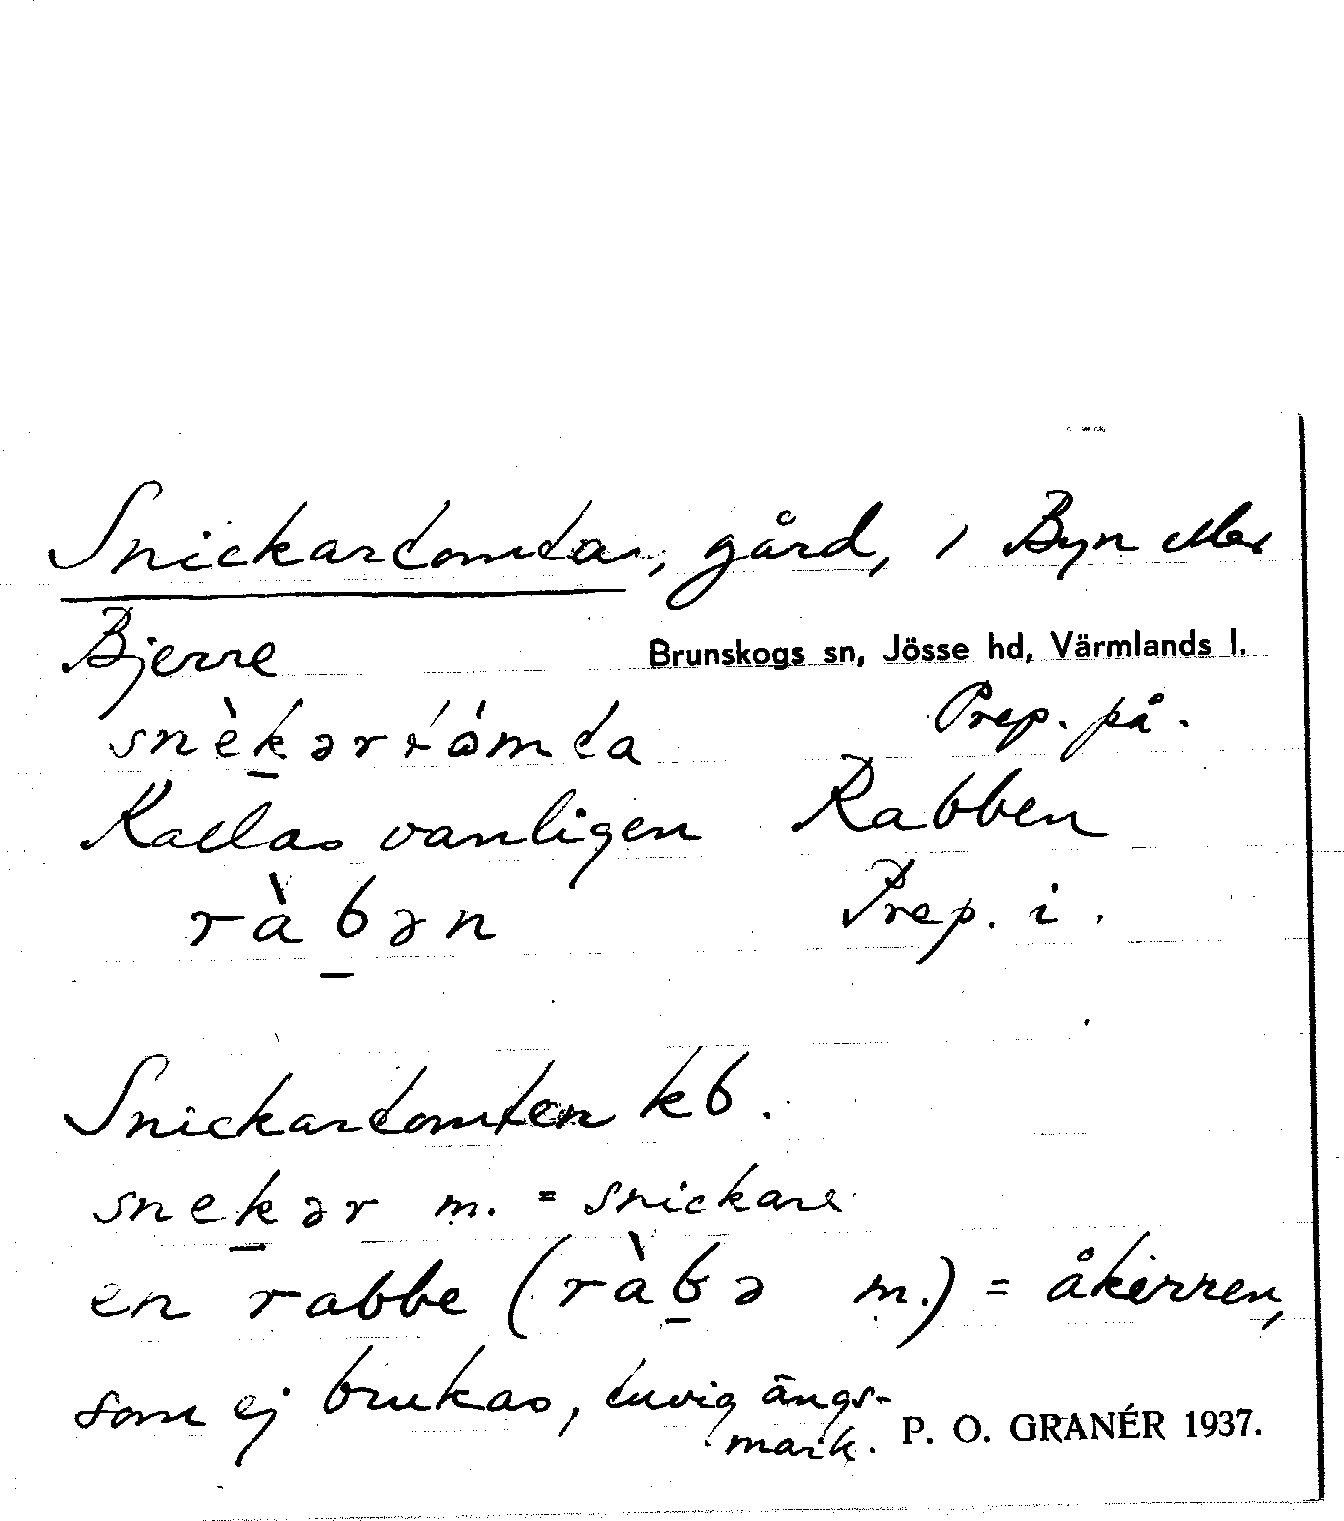 Snickartomta, gård, i Byn eller
Bjerre Brunskogs sn, Jösse hd, Värmlands l.
snèkərtåmta Prep. på.
Kallas vanligen Rabben
ràbən Prep. i.
Snickartomten kb.
snekər m. = snickare
en rabbe (ràbə m.) = åkerren,
som ej brukas, tuvig ängs-
mark. P. O. GRANÉR 1937.